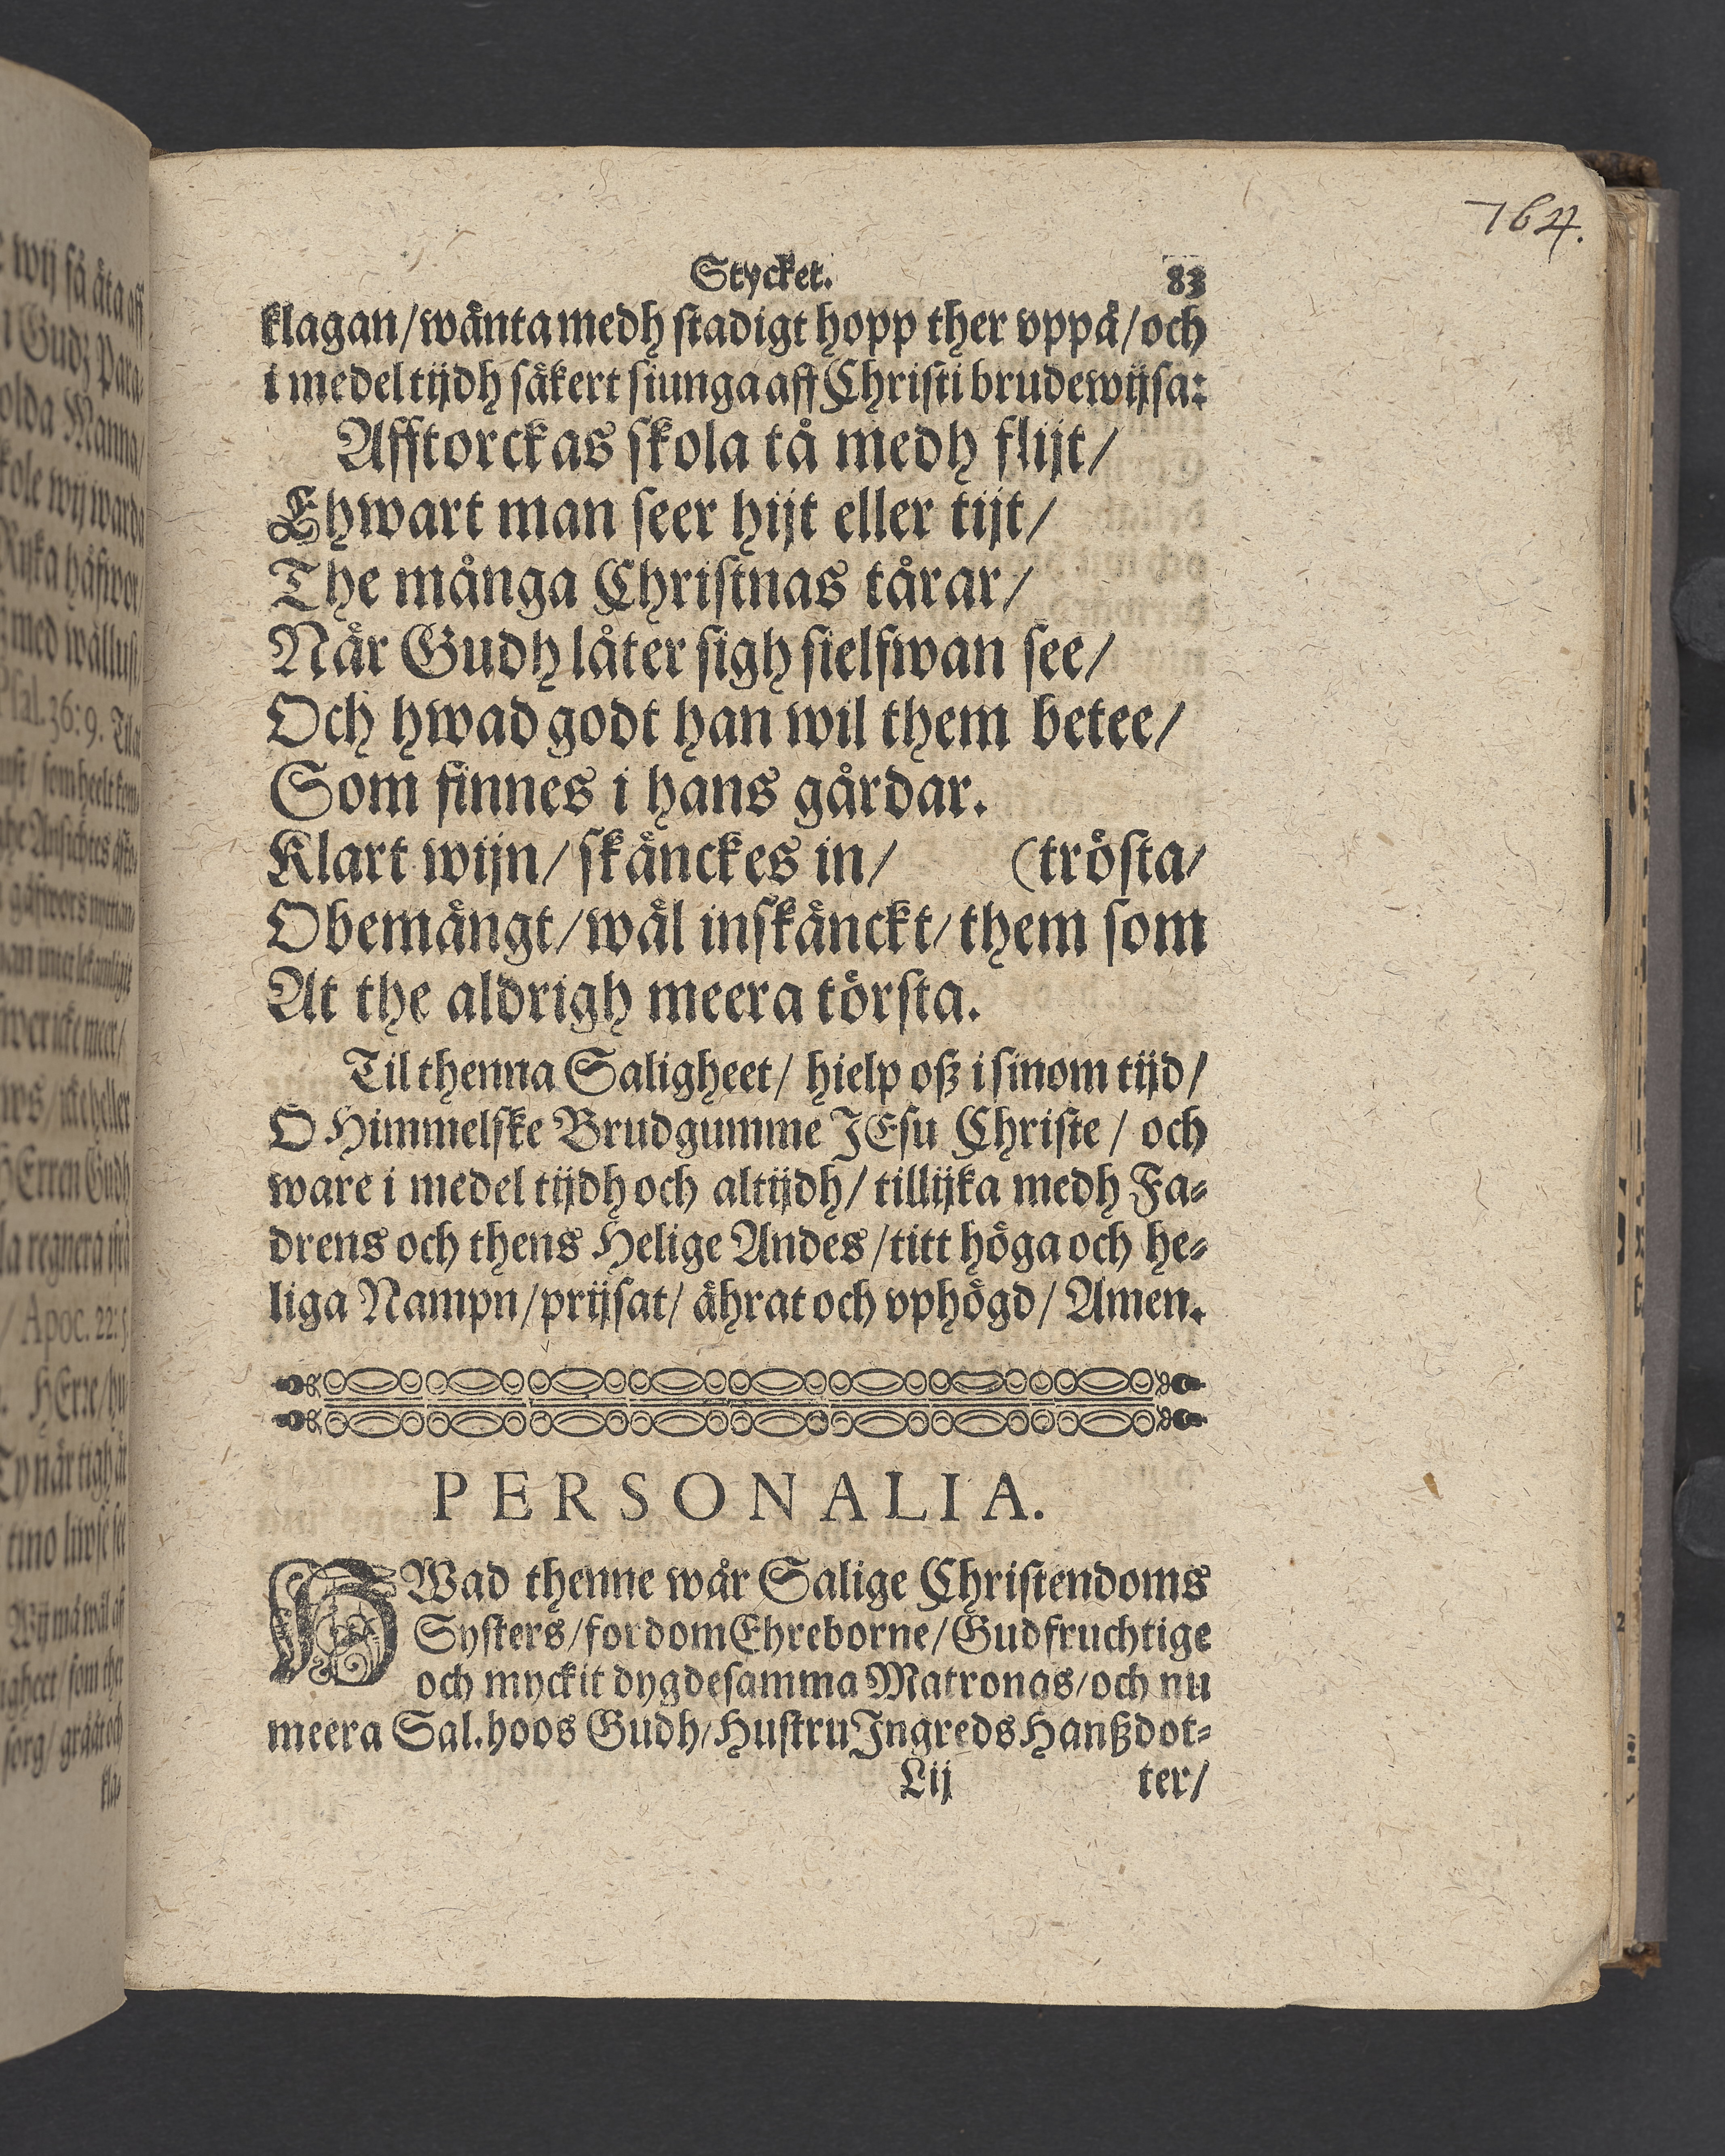 764.
Stycket. 83
klagan/wänta medh stadigt hopp ther vppå/och
i medel tijdh säkert siunga aff Christi brudewijsa:
Afftorckas skola tå medh flijt/
Ehwart man seer hijt eller tijt/
The många Christnas tårar/
När Gudh låter sigh sielfwan see/
Och hwad godt han wil them betee/
Som finnes i hans gårdar.
Klart wijn/ skänckes in/ (trösta/
Obemängt/wäl inskänckt/them som
At the aldrigh meera törsta.
Til thenna Saligheet/ hielp oß i sinom tijd/
O Himmelske Brudgumme JEsu Christe/ och
ware i medel tijdh och altijdh/ tillijka medh Fa-
drens och thens Helige Andes/titt höga och he-
liga Nampn/prijsat/ ährat och vphögd/ Amen.
PERSONALIA.
HWad thenne wår Salige Christendoms
Systers/fordom Ehreborne/Gudfruchtige
och myckit dygdesamma Matronas/och nu
meera Sal. hoos Gudh/Hustru Ingreds Hanßdot-
Lij ter/